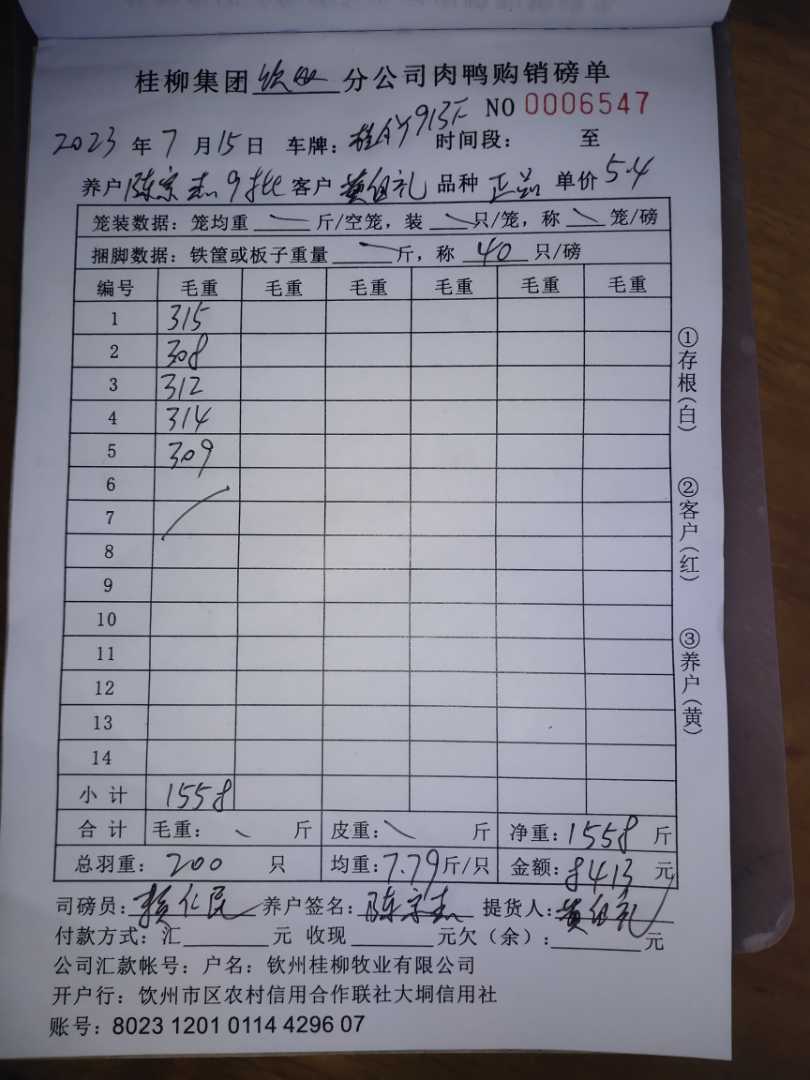 桂柳集团钦州分公司肉鸭购销磅单
NO 0006547
2023年7月15日 车牌：桂A 913F 时间段： 至
养户陈宗杰9批 客户黄组礼 品种正品 单价5.4
笼装数据：笼均重 斤/空笼，装 只/笼，称 笼/磅
捆脚数据：铁筐或板子重量 斤，称 40 只/磅
编号 毛重 毛重 毛重 毛重 毛重 毛重
1 315
2 308
3 312
4 314
5 309
6
7
8
9
10
11
12
13
14
小计 1558
合计 毛重： 斤 皮重： 斤 净重：1558斤
总羽重：200 只 均重：7.79斤/只 金额：8413元
司磅员： 仁民 养户签名：陈宗杰 提货人：黄组礼
付款方式：汇 元 收现 元欠（余）： 元
公司汇款帐号：户名：钦州桂柳牧业有限公司
开户行：饮州市区农村信用合作联社大垌信用社
账号：8023 1201 0114 4296 07
①存根（白）
②客户（红）
③养户（黄）